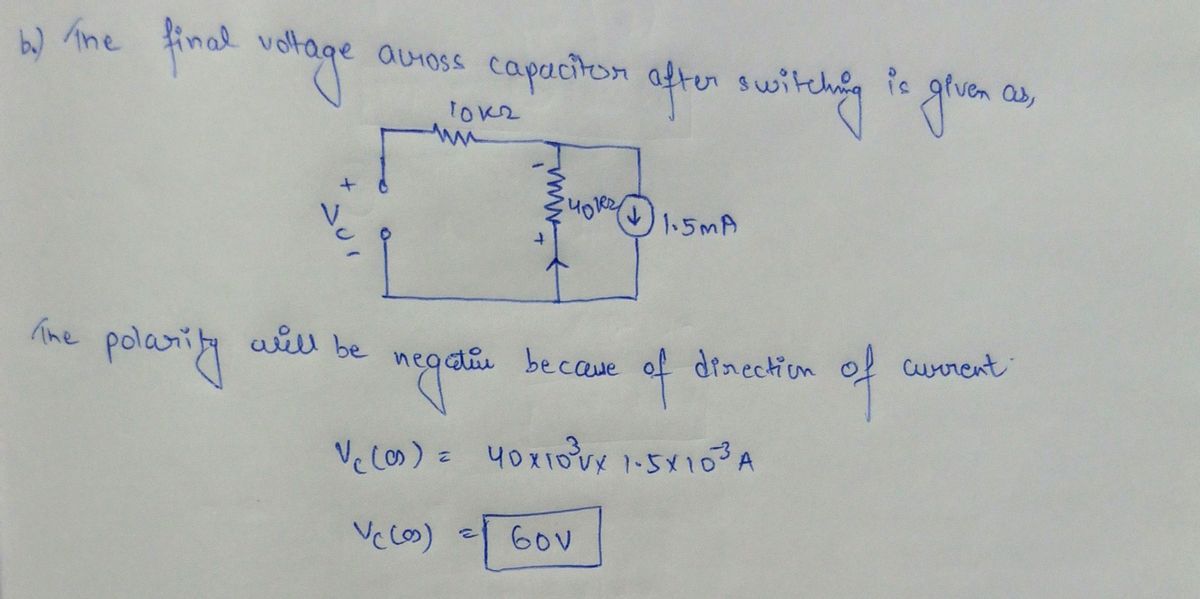 b.) The final voltage across capacitor after switching is given as,
10KΩ
+
Vc
-
-
40KΩ
+
1.5mA
The polarity will be negative because of direction of current.
Vc(∞) = 40x10³Vx 1.5x10⁻³ A
Vc(∞) = 60V